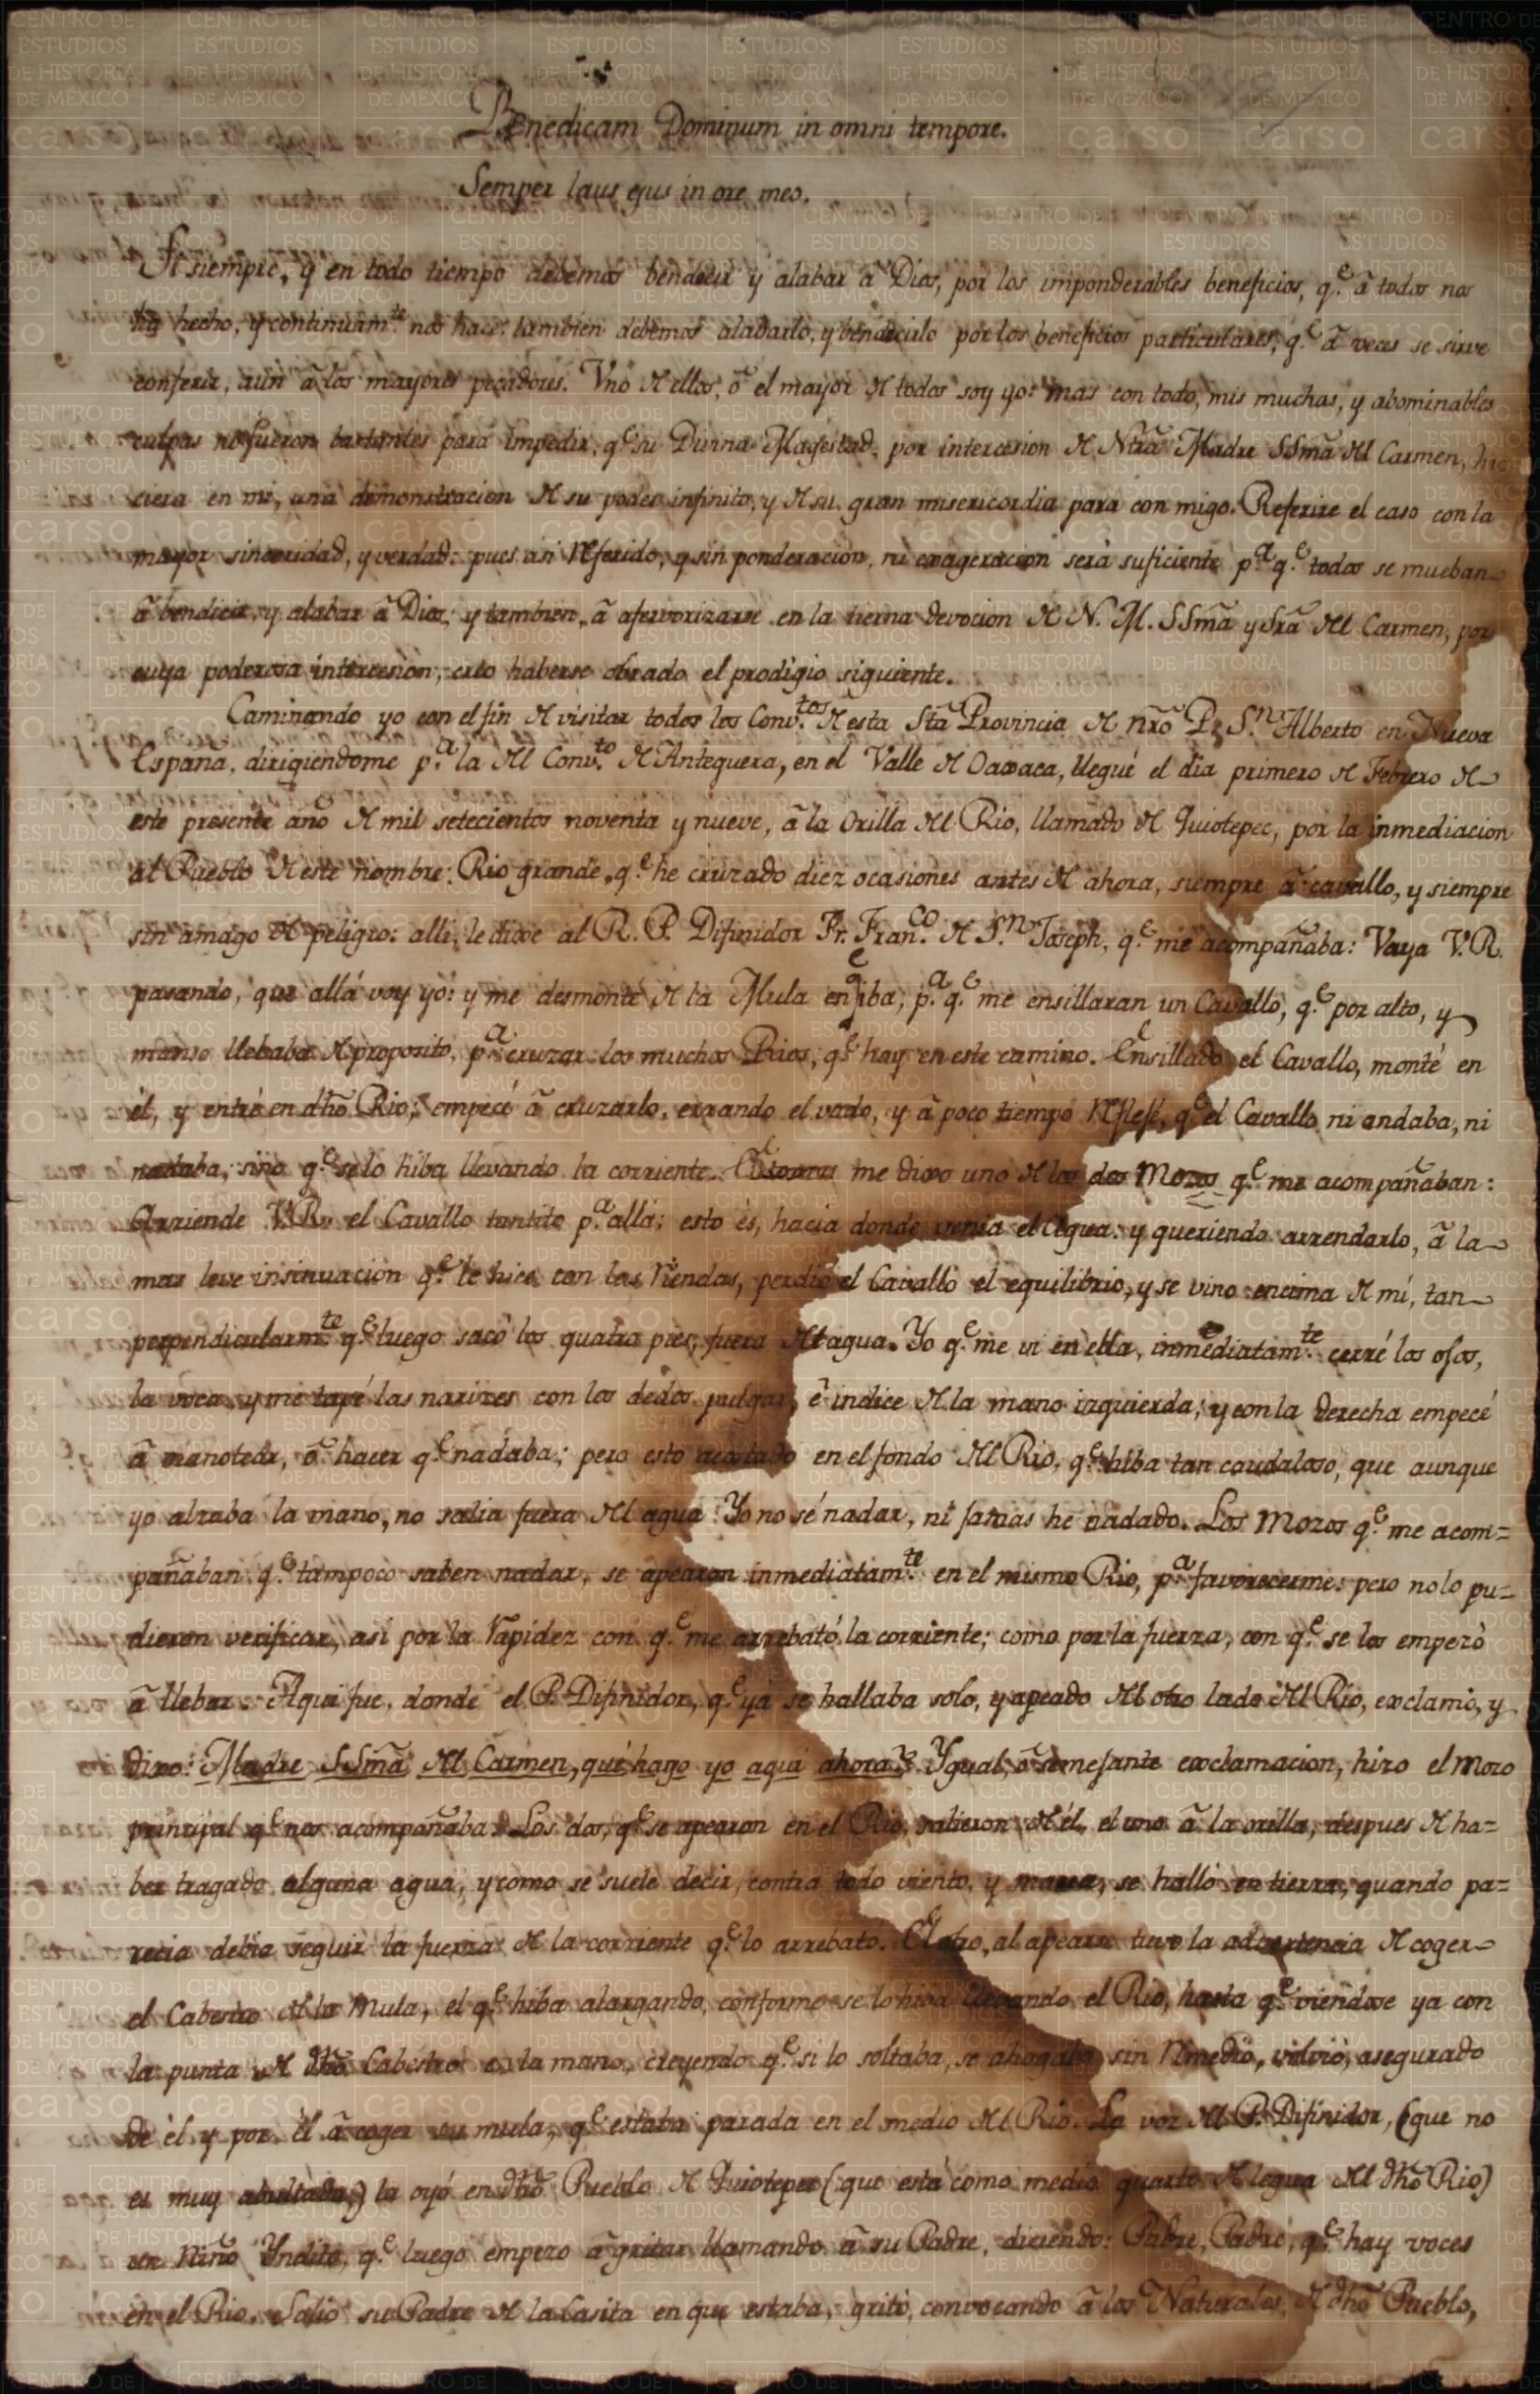 Benedicam Dominum in omni tempore.
Semper laus ejus in ore meo.
Si siempre, y en todo tiempo debemos bendecir y alabar â Dios, por los imponderables beneficios, q.e â todos nos
há hecho, y continuam.te nos hace: tambien debemos alabarlo, y bendecirlo por los beneficios particulares, q.e â veces se sirve
conferir, aùn â los mayores pecadores. Vno de ellos, ô el mayor de todos soy yo: mas con todo, mis muchas, y abominables
culpas no fueron bastantes para impedir, q.e su Divina Magestad, por intercesion de Ntrã Madre SSmã del Carmen, hi
ciera en mi, una demonstracion de su poder infinito, y de su gran misericordia para con migo. Referire el caso con la
mayor sinceridad, y verdad: pues asi referido, y sin ponderacion, ni exageracion serà suficiente p.a q.e todos se mueban
â bendecir, y alabar â Dios; y tambien, â afervorizarse en la tierna devocion de N. M. SSmã y Srã del Carmen, por
cuya poderosa intercesion, creo haberse obrado el prodigio siguiente.
Caminando yo con el fin de visitar todos los Conv.tos de esta Stã Provincia de nrõ P. S.n Alberto en Nueva
España, dirigiendome p.a la del Conv.to de Antequera, en el Valle de Oaxaca, llegué el dia primero de Febrero de
este presente año de mil setecientos noventa y nueve, â la orilla del Rio, llamado de Quiotepec, por la inmediacion
al Pueblo de este nombre: Rio grande, q.e he cruzado diez ocasiones antes de ahora, siempre â cavallo, y siempre
sin amago de peligro: alli, le dixe al R. P. Difinidor Fr. Fran.co de S.n Joseph, q.e me acompañaba: Vaya V.R.
pasando, que allá voy yo: y me desmonté de la Mula en q.e iba, p.a q.e me ensillaran un Cavallo, q.e por alto, y
manso llebaba de proposito, p.a cruzar los muchos Rios, q.e hay en este camino. Ensillado el Cavallo, monté en
él, y entré en dhõ Rio; empecé â cruzarlo, errando el vado, y â poco tiempo reflejé, q.e el Cavallo ni andaba, ni
nadaba, sino q.e se lo hiba llevando la corriente. Entonces me dixo uno de los dos Mozos q.e me acompañaban:
Arriende V.R. el Cavallo tantito p.a allá; esto és, hacia donde venia el Agua: y queriendo arrendarlo, â la
mas leve insinuacion q.e le hice con las riendas, perdió el Cavallo el equilibrio, y se vino encima de mí, tan
perpendicularm.te q.e luego sacó los quatro pies, fuera del agua. Yo q.e me vi en ella, inmediatam.te cerré los ojos,
la voca, y me tapé las narizes con los dedos pulgar, ê indice de la mano izquierda; y con la derecha empecé
â manotear, ô hacer q.e nadaba; pero esto acostado en el fondo del Rio, q.e hiba tan caudaloso, que aunque
yo alzaba la mano, no salia fuera del agua. Yo no sé nadar, ni jamàs he nadado. Los Mozos q.e me acom=
pañaban q.e tampoco saben nadar, se apearon inmediatam.te en el mismo Rio, p.a favorecerme: pero no lo pu=
dieron verificar, así por la rapidez con q.e me arrebató la corriente; como por la fuerza, con q.e se los empezó
â llebar. Aqui fue, donde el P. Difinidor, q.e ya se hallaba solo, y apeado del otro lado del Rio, exclamó, y
dixo: Madre SSmã del Carmen, qué hago yo aqui ahora? Ygual, ô semejante exclamacion, hizo el Mozo
principal q.e nos acompañaba. Los dos, q.e se apearon en el Rio, salieron de él, el uno â la orilla, despues de ha=
ber tragado alguna agua, y como se suele decir, contra todo viento, y marea, se halló en tierra, quando pa=
recia debía seguir la fuerza de la corriente q.e lo arrebató. El otro, al apearse tuvo la advertencia de coger
el Cabestro de la Mula, el q.e hiba alargando, conforme se lo hiba llevando el Rio, hasta q.e viendose ya con
la punta de dhõ Cabestro en la mano, creyendo q.e si lo soltaba, se ahogaba sin remedio, volvió, asegurado
de él y por él â coger su mula, q.e estaba parada en el medio del Rio. La voz del P. Difinidor, (que no
es muy abultada,) la oyó en dhõ Pueblo de Quiotepec (que está como medio quarto de legua del dhõ Rio)
un Niño Yndito, q.e luego empezo â gritar llamando â su Padre, diciendo: Padre, Padre, q.e hay voces
en el Rio. Salió su Padre de la Casita en que estaba, gritó, convocando â los Naturales de dhõ Pueblo,